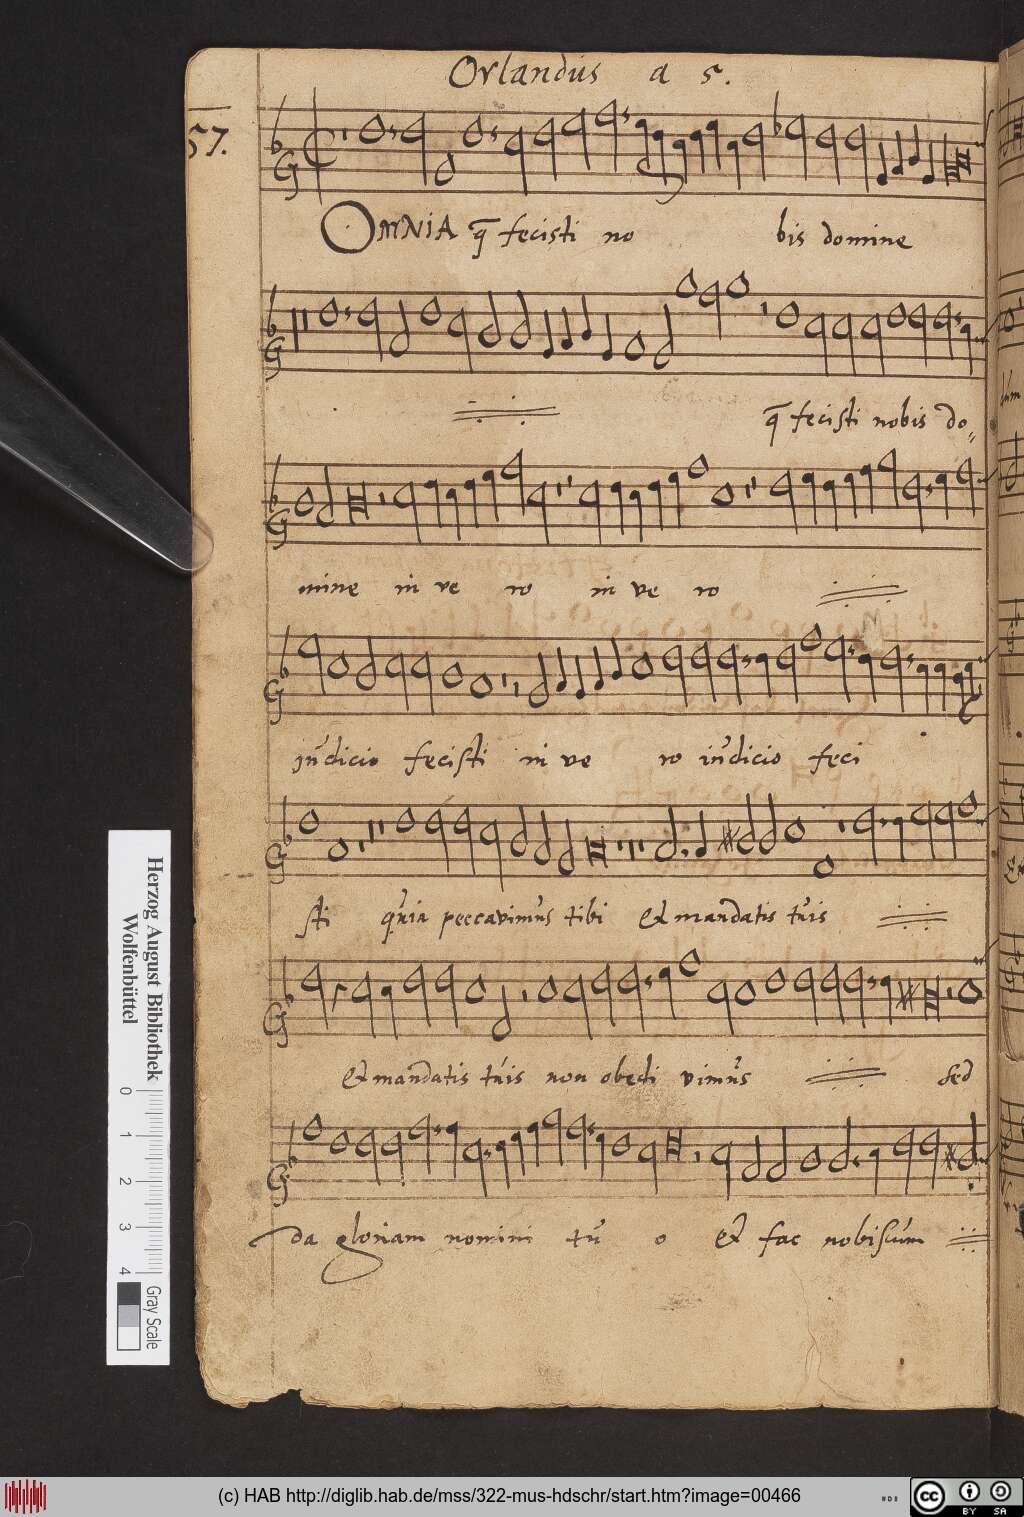 Orlandus a 5.
57.
OMNIA q̄ fecisti no bis domine
q̄ fecisti nobis do
mine in ve ro in ve ro
iudicio fecisti in ve ro iudicio feci
sti quia peccavimus tibi Et mandatis tuis
Et mandatis tuis non obedi vimus sed
da gloriam nomini tu o Et fac nobiscum
Herzog August Bibliothek
Wolfenbüttel
0 1 2 3 4
Gray Scale
(c) HAB http://diglib.hab.de/mss/322-mus-hdschr/start.htm?image=00466
cc BY SA